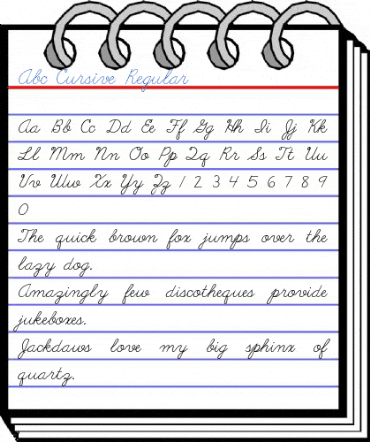 Abc Cursive Regular
Aa Bb Cc Dd Ee Ff Gg Hh Ii Jj Kk
Ll Mm Nn Oo Pp Qq Rr Ss Tt Uu
Vv Ww Xx Yy Zz 1 2 3 4 5 6 7 8 9
0
The quick brown fox jumps over the
lazy dog.
Amazingly few discotheques provide
jukeboxes.
Jackdaws love my big sphinx of
quartz.